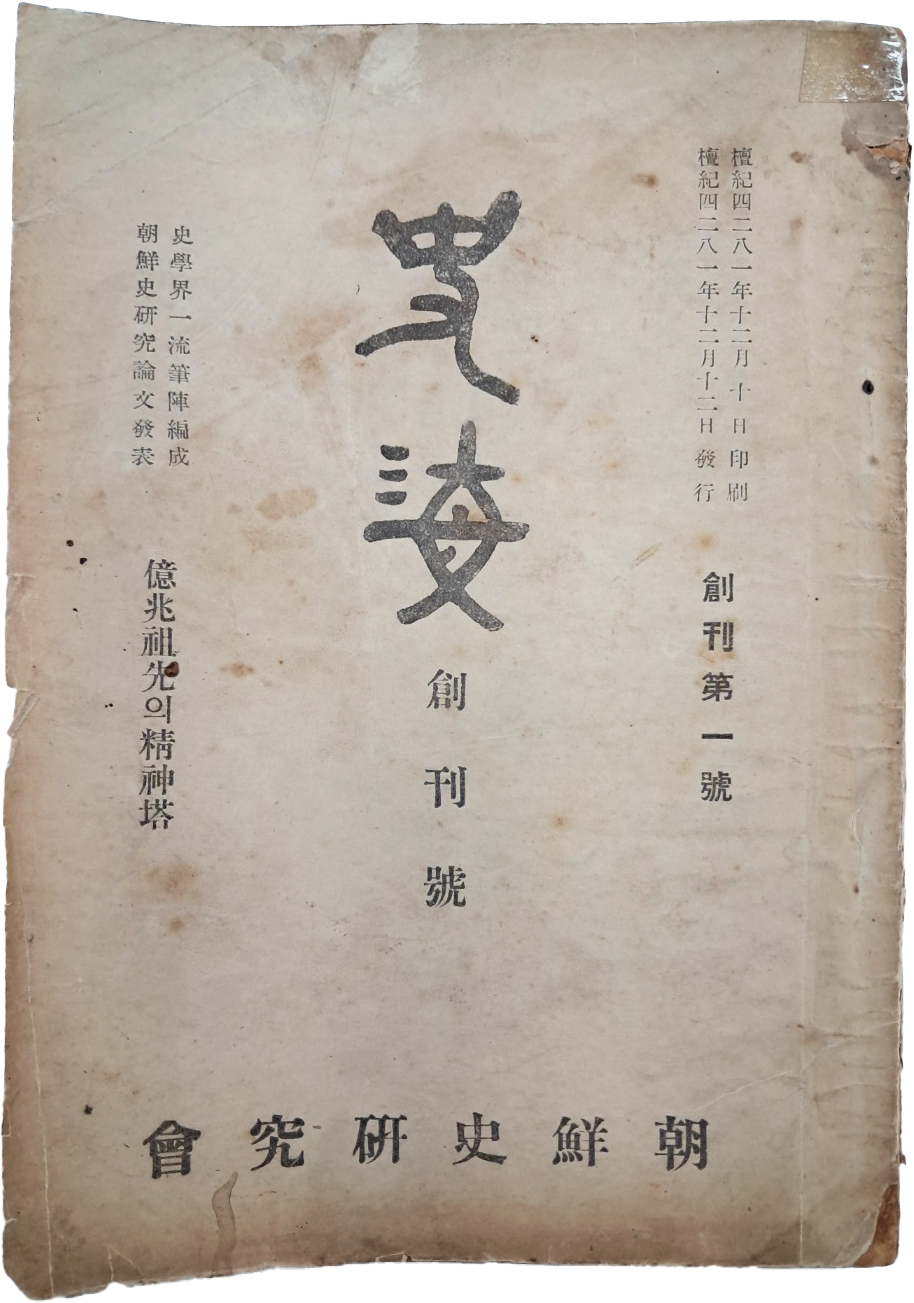 檀紀四二八一年十二月十日印刷
檀紀四二八一年十二月十二日發行
創刊第一號
史海
創刊號
史學界一流筆陣編成
朝鮮史研究論文發表
億兆祖先의精神塔
朝鮮史硏究會